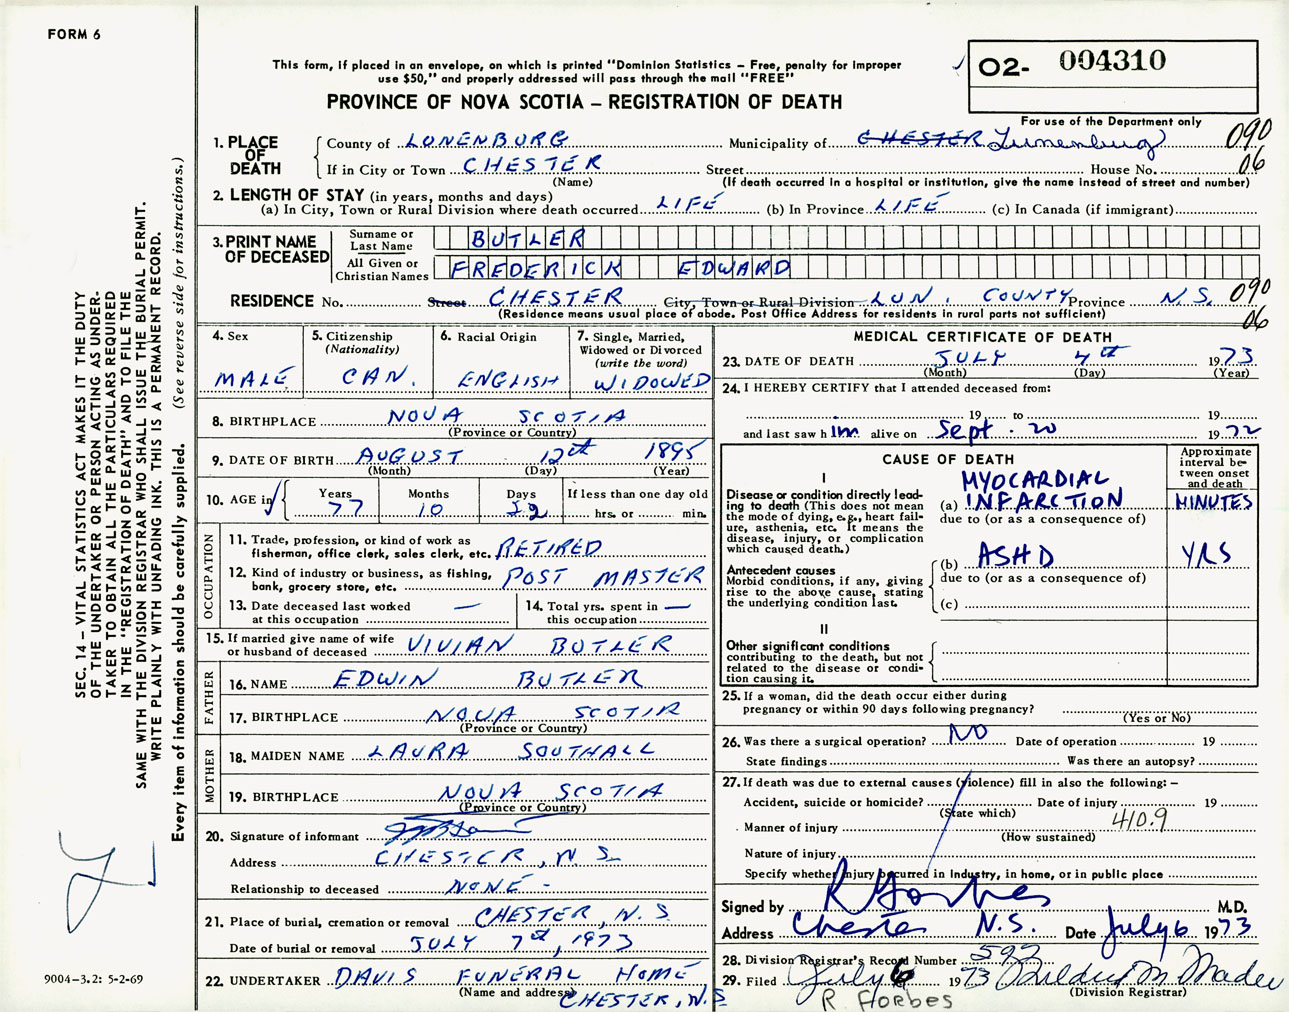 FORM 6
This form, if placed in an envelope, on which is printed "Dominion Statistics – Free, penalty for improper
use $50," and properly addressed will pass through the mail "FREE"
PROVINCE OF NOVA SCOTIA – REGISTRATION OF DEATH
O2- 004310
For use of the Department only
1. PLACE OF DEATH
County of LUNENBURG Municipality of CHESTER Lunenburg 090
If in City or Town CHESTER Street House No. 06
(Name) (If death occurred in a hospital or institution, give the name instead of street and number)
2. LENGTH OF STAY (in years, months and days)
(a) In City, Town or Rural Division where death occurred LIFE (b) In Province LIFE (c) In Canada (if immigrant)
3. PRINT NAME OF DECEASED
Surname or Last Name BUTLER
All Given or Christian Names FREDERICK EDWARD
RESIDENCE No. Street CHESTER City, Town or Rural Division LUN. COUNTY Province N.S. 090
(Residence means usual place of abode. Post Office Address for residents in rural parts not sufficient) 06
4. Sex
MALE
5. Citizenship
(Nationality)
CAN.
6. Racial Origin
ENGLISH
7. Single, Married,
Widowed or Divorced
(write the word)
WIDOWED
8. BIRTHPLACE NOVA SCOTIA
(Province or Country)
9. DATE OF BIRTH AUGUST 12th 1895
(Month) (Day) (Year)
10. AGE in
Years 77
Months 10
Days 22
If less than one day old
hrs. or min.
OCCUPATION
11. Trade, profession, or kind of work as
fisherman, office clerk, sales clerk, etc. RETIRED
12. Kind of industry or business, as fishing,
bank, grocery store, etc. POST MASTER
13. Date deceased last worked
at this occupation —
14. Total yrs. spent in
this occupation —
15. If married give name of wife
or husband of deceased VIVIAN BUTLER
FATHER
16. NAME EDWIN BUTLER
17. BIRTHPLACE NOVA SCOTIA
(Province or Country)
MOTHER
18. MAIDEN NAME LAURA SOUTHALL
19. BIRTHPLACE NOVA SCOTIA
(Province or Country)
20. Signature of informant
Address CHESTER, N.S.
Relationship to deceased NONE -
21. Place of burial, cremation or removal CHESTER, N.S
Date of burial or removal JULY 7th, 1973
22. UNDERTAKER DAVIS FUNERAL HOME
(Name and address) CHESTER, N.S
MEDICAL CERTIFICATE OF DEATH
23. DATE OF DEATH JULY 4th 1973
(Month) (Day) (Year)
24. I HEREBY CERTIFY that I attended deceased from:
19 to 19
and last saw him alive on Sept. 20 1972
CAUSE OF DEATH
Approximate
interval be-
tween onset
and death
I
Disease or condition directly lead-
ing to death (This does not mean
the mode of dying, e.g., heart fail-
ure, asthenia, etc. It means the
disease, injury, or complication
which caused death.)
(a) MYOCARDIAL
INFARCTION MINUTES
due to (or as a consequence of)
Antecedent causes
Morbid conditions, if any, giving
rise to the above cause, stating
the underlying condition last.
(b) ASHD YRS
due to (or as a consequence of)
(c)
II
Other significant conditions
contributing to the death, but not
related to the disease or condi-
tion causing it.
25. If a woman, did the death occur either during
pregnancy or within 90 days following pregnancy?
(Yes or No)
26. Was there a surgical operation? NO Date of operation 19
State findings Was there an autopsy?
27. If death was due to external causes (violence) fill in also the following: –
Accident, suicide or homicide? Date of injury 19
(State which)
Manner of injury 410.9
(How sustained)
Nature of injury
Specify whether injury occurred in industry, in home, or in public place
Signed by R Forbes M.D.
Address Chester N.S. Date July 6 1973
28. Division Registrar's Record Number 592
29. Filed July 6 1973 Mildred M Mader
(Division Registrar)
R Forbes
SEC. 14 – VITAL STATISTICS ACT MAKES IT THE DUTY
OF THE UNDERTAKER OR PERSON ACTING AS UNDER-
TAKER TO OBTAIN ALL THE PARTICULARS REQUIRED
IN THE "REGISTRATION OF DEATH" AND TO FILE THE
SAME WITH THE DIVISION REGISTRAR WHO SHALL ISSUE THE BURIAL PERMIT.
WRITE PLAINLY WITH UNFADING INK. THIS IS A PERMANENT RECORD.
Every item of information should be carefully supplied. (See reverse side for instructions.)
9004–3.2: 5-2-69